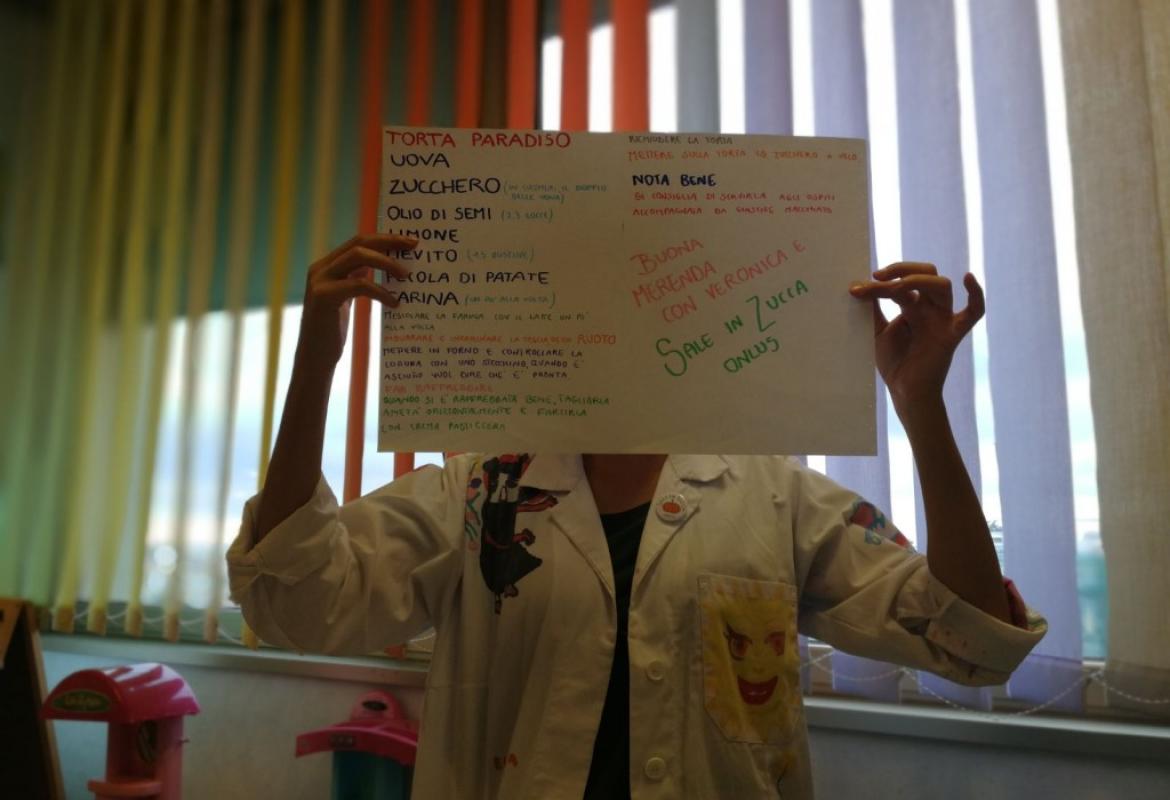 TORTA PARADISO
UOVA
ZUCCHERO (IN CUCCHIAI, IL DOPPIO
DELLE UOVA)
OLIO DI SEMI (2,3 GOCCE)
LIMONE
LIEVITO (1,5 BUSTINE)
FECOLA DI PATATE
FARINA (UN PO' ALLA VOLTA)
MESCOLARE LA FARINA CON IL LATTE UN PO'
ALLA VOLTA
IMBURRARE E INFARINARE LA TEGLIA RUOTO
METTERE IN FORNO E CONTROLLARE LA
COTTURA CON UNO STECCHINO, QUANDO E'
ASCIUTTO VUOL DIRE CHE E' PRONTA.
FAR RAFFREDDARE
QUANDO SI E' RAFFREDDATA BENE, TAGLIARLA
A METÀ ORIZZONTALMENTE E FARCIRLA
CON CREMA PASTICCERA
RICHIUDERE LA TORTA
METTERE SULLA TORTA LO ZUCCHERO A VELO
NOTA BENE
SI CONSIGLIA DI SERVIRLA AGLI OSPITI
ACCOMPAGNATA DA GINSENG MACCHIATO
BUONA
MERENDA
CON VERONICA E
SALE IN ZUCCA
ONLUS